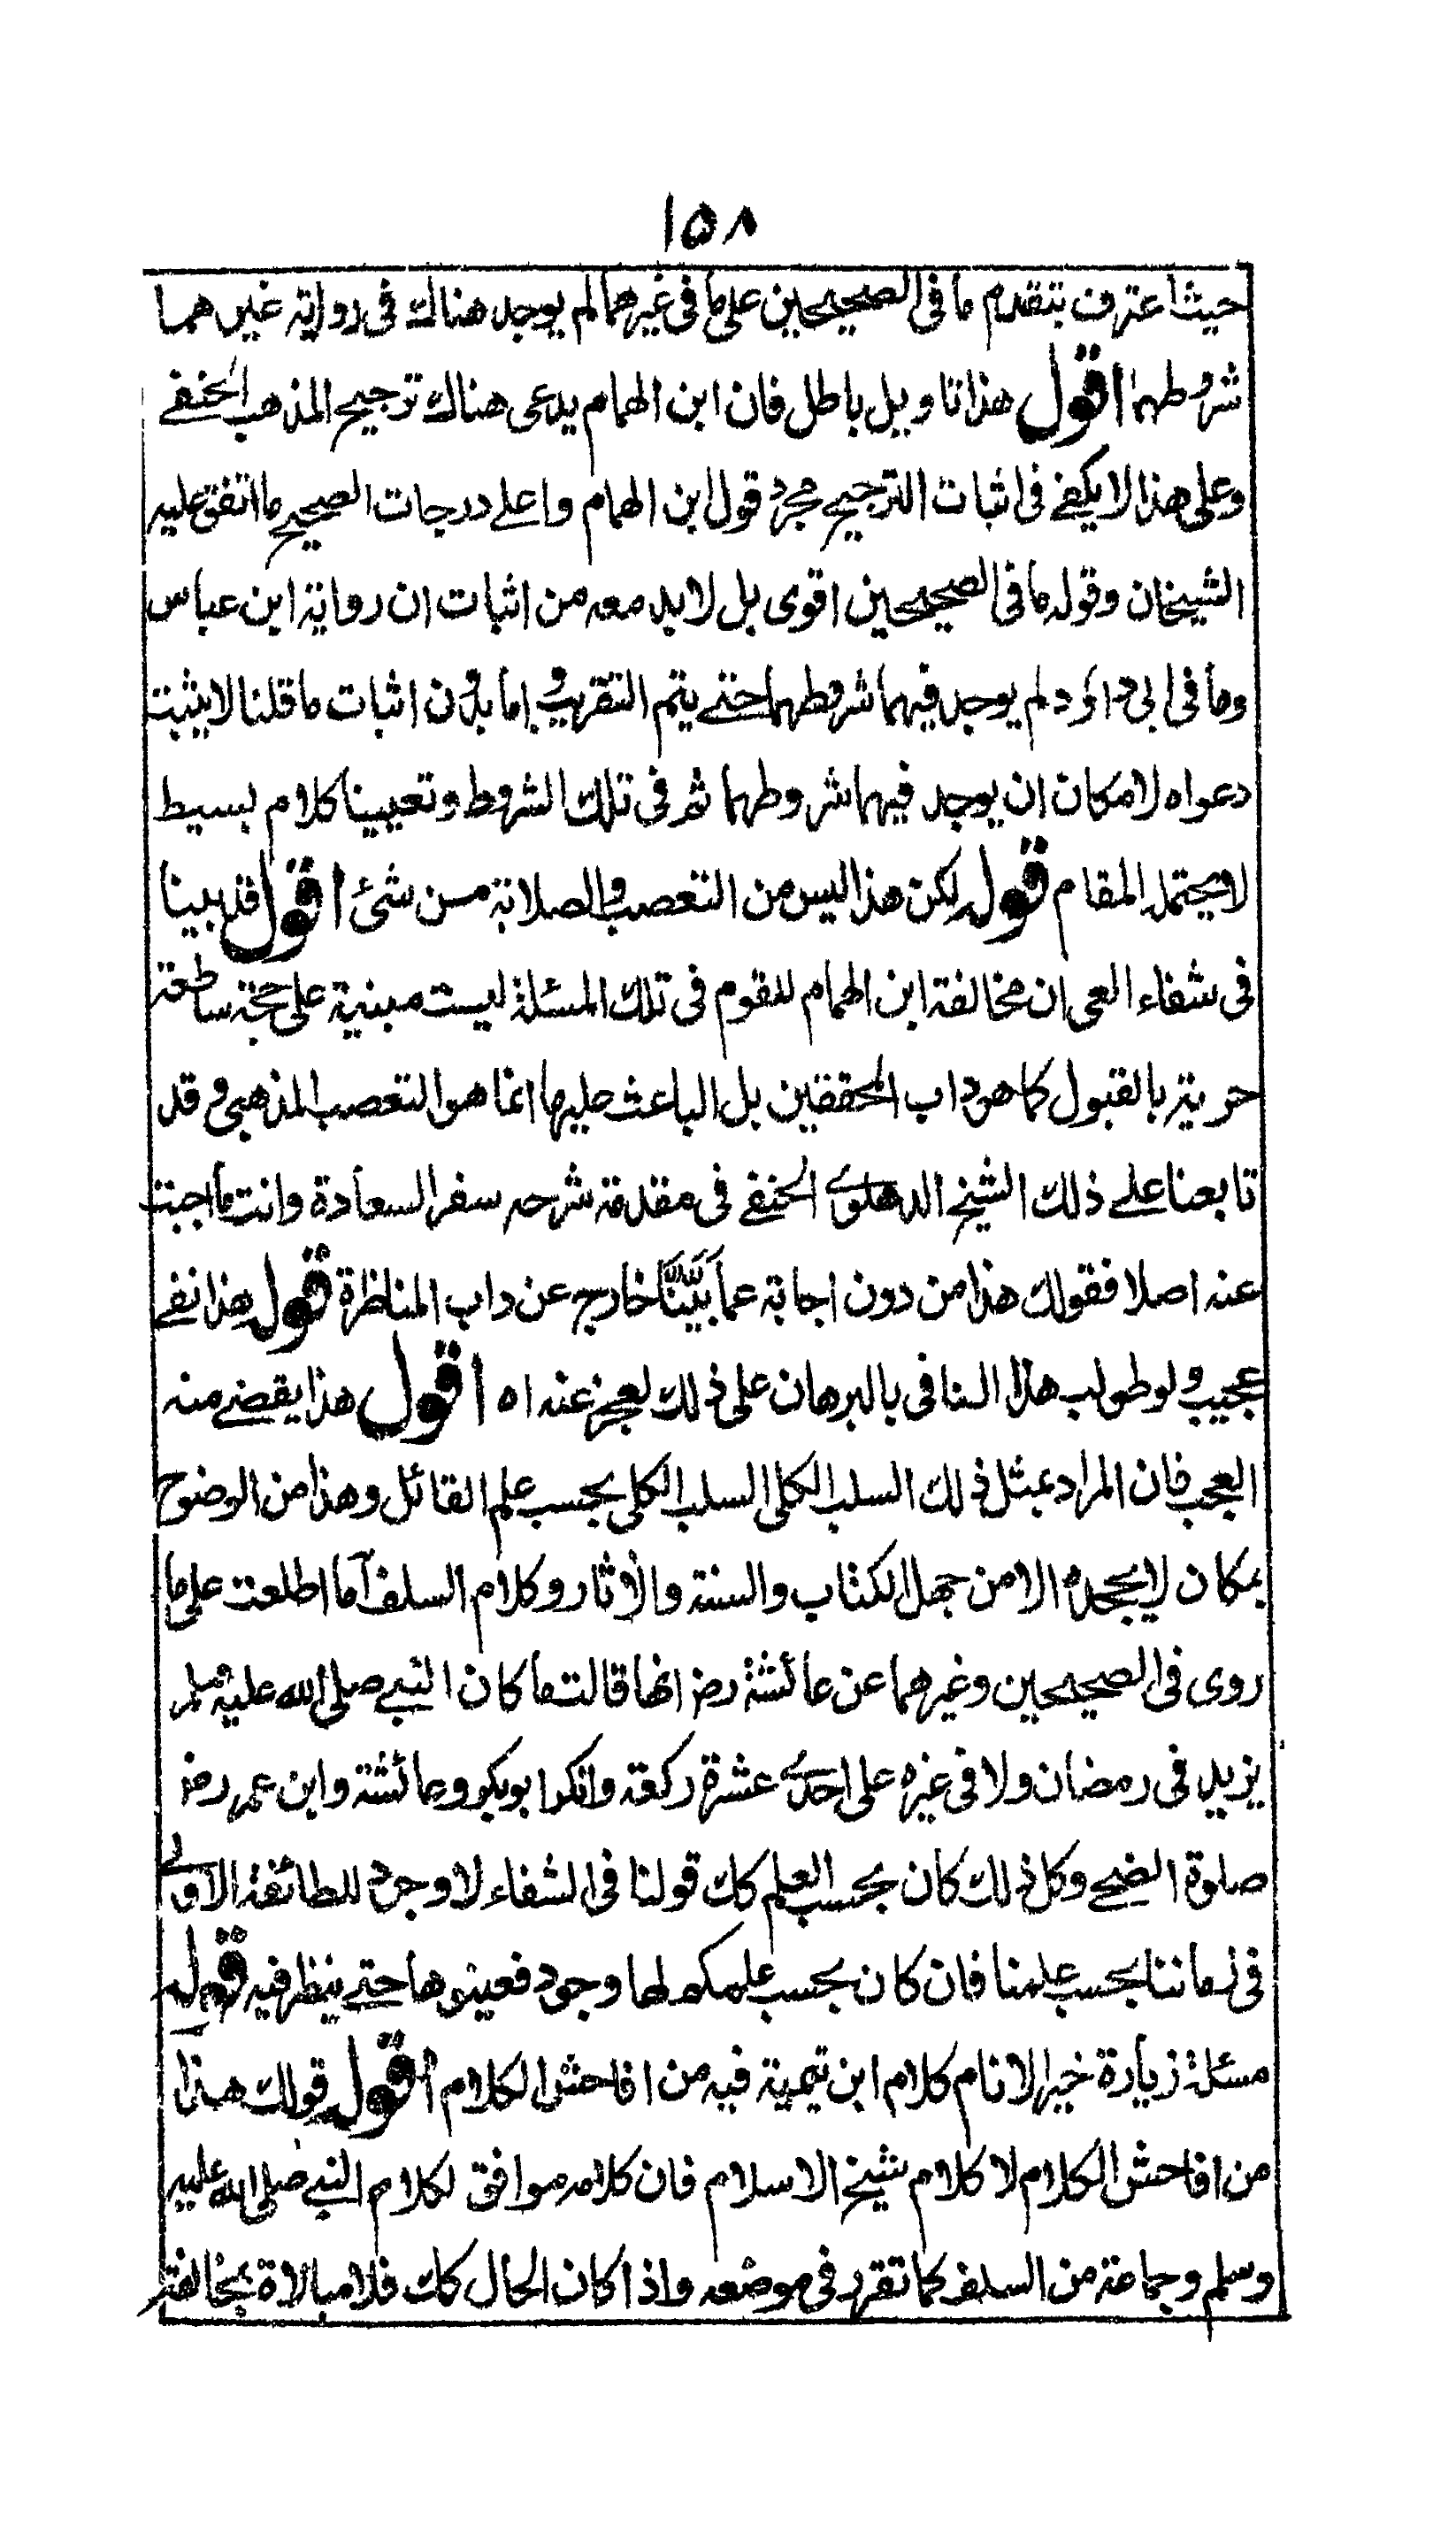 ۱۵۸
حيث اعترف بتقدم ما فى الصحيحين على ما فى غيرهما لم يوجد هناك فى رواية غيرهما
شروطهما اقول هذا تاويل باطل فان ابن الهمام يدعى هناك ترجيح المذهب الحنفے
وعلى هذا لا يكفے فى اثبات الترجيح مجرد قول ابن الهمام واعلے درجات الصحيح ما اتفق عليه
الشيخان وقوله ما فى الصحيحين اقوى بل لا بد معه من اثبات ان رواية ابن عباس
وما فى ابى داؤد لم يوجد فيهما شروطهما حتے يتم التقريب واما بدون اثبات ما قلنا لا يثبت
دعواه لامكان ان يوجد فيهما شروطهما ثم فى تلك الشروط وتعيينها كلام بسيط
لا يحتمله المقام قوله لكن هذا ليس من التعصب والصلابة من شئ اقول قد بينا
فى شفاء العى ان مخالفة ابن الهمام للقوم فى تلك المسئلة ليست مبنية على حجة ساطعة
حرية بالقبول كما هو داب المحققين بل الباعث عليها انما هو التعصب المذهبى وقد
تابعنا علے ذلك الشيخ الدهلوے الحنفے فى مقدمة شرحه سفر السعادة وانت ما اجبت
عنه اصلا فقولك هذا من دون اجابة عما بَيَّنَّا خارج عن داب المناظرة قوله هذا نفے
عجيب ولو طولب هذا النافى بالبرهان على ذلك لعجز عنه اه اقول هذا يقضے منه
العجب فان المراد بمثل ذلك السلب الكلى السلب الكلى بحسب علم القائل وهذا من الوضوح
بمكان لا يجحده الا من جهل الكتاب والسنة والاثار وكلام السلف آما اطلعت على ما
روى فى الصحيحين وغيرهما عن عائشة رضـ انها قالت ما كان النبے صلى الله عليه وسلم
يزيد فى رمضان ولا فى غيره على احدے عشرة ركعة وانكر ابو بكر وعائشة وابن عمر رضـ
صلوة الضحے وكل ذلك كان بحسب العلم كك قولنا فى الشفاء لا وجود للطائفة الاولے
فى زماننا بحسب علمنا فان كان بحسب علمكم لها وجود فعينوها حتے ينظر فيه قوله
مسئلة زيارة خير الانام كلام ابن تيمية فيه من افاحش الكلام اقول قولك هذا
من افاحش الكلام لا كلام شيخ الاسلام فان كلامه موافق لكلام النبے صلى الله عليه
وسلم وجماعة من السلف كما تقرر فى موضعه واذا كان الحال كك فلا مبالاة بمخالفة